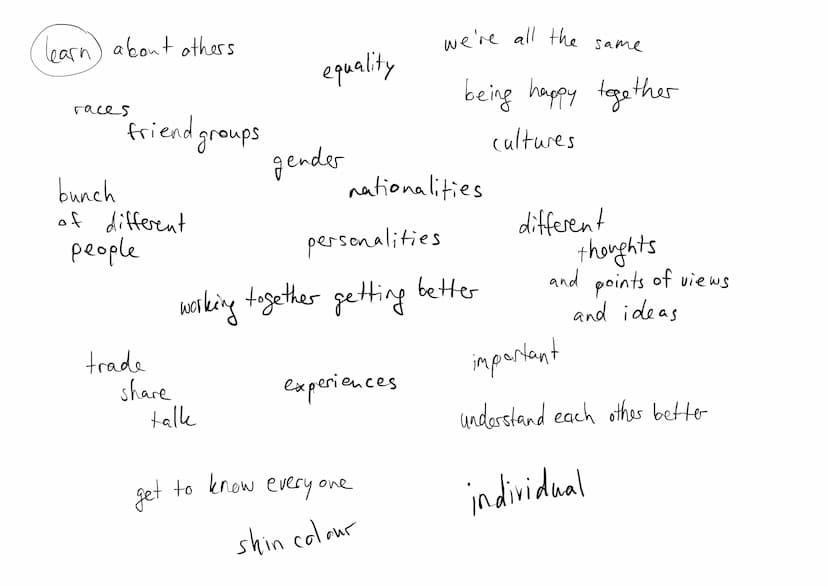 learn about others
equality
we're all the same
being happy together
races
friend groups
cultures
gender
nationalities
bunch
of different
people
personalities
different
thoughts
and points of views
and ideas
working together getting better
trade
share
talk
experiences
important
understand each other better
get to know everyone
individual
skin colour